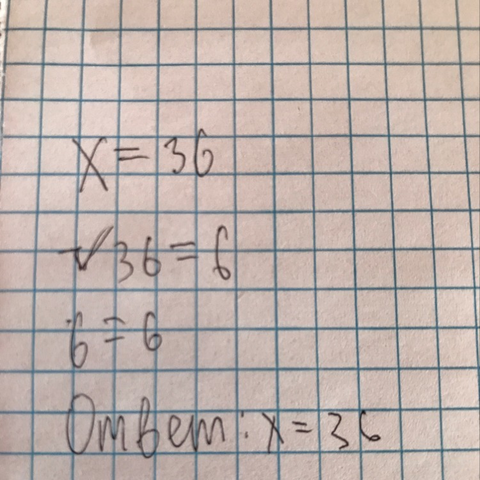 x = 36
√36 = 6
6 = 6
Ответ: x = 36